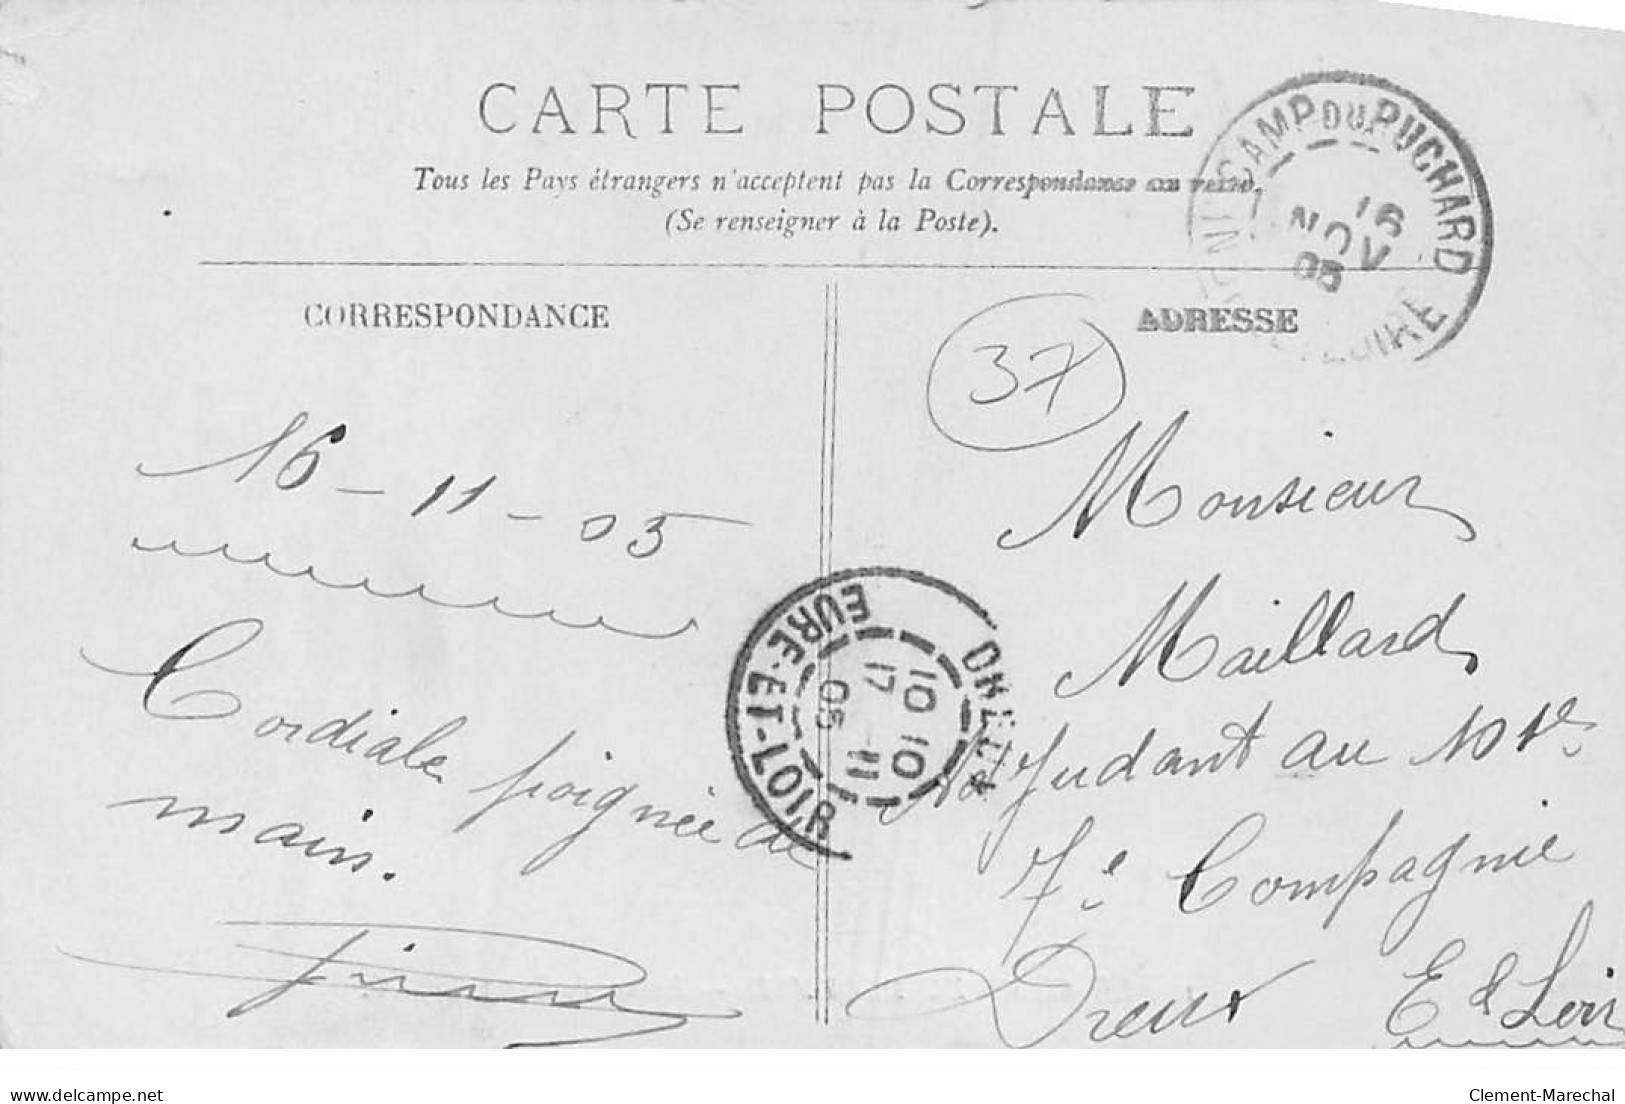 CARTE POSTALE
Tous les Pays étrangers n'acceptent pas la Correspondance au recto.
(Se renseigner à la Poste).
CAMP DU PUCHARD
16
NOV
05
LOIRE
CORRESPONDANCE
ADRESSE
37
16-11-05
Cordiale poignée de
main.
DREUX
EURE-ET-LOIR
10 10
17 11
05
Monsieur
Maillard
Adjudant au 101e
7e Compagnie
Dreux E & Loir
delcampe.net
Clement-Marechal